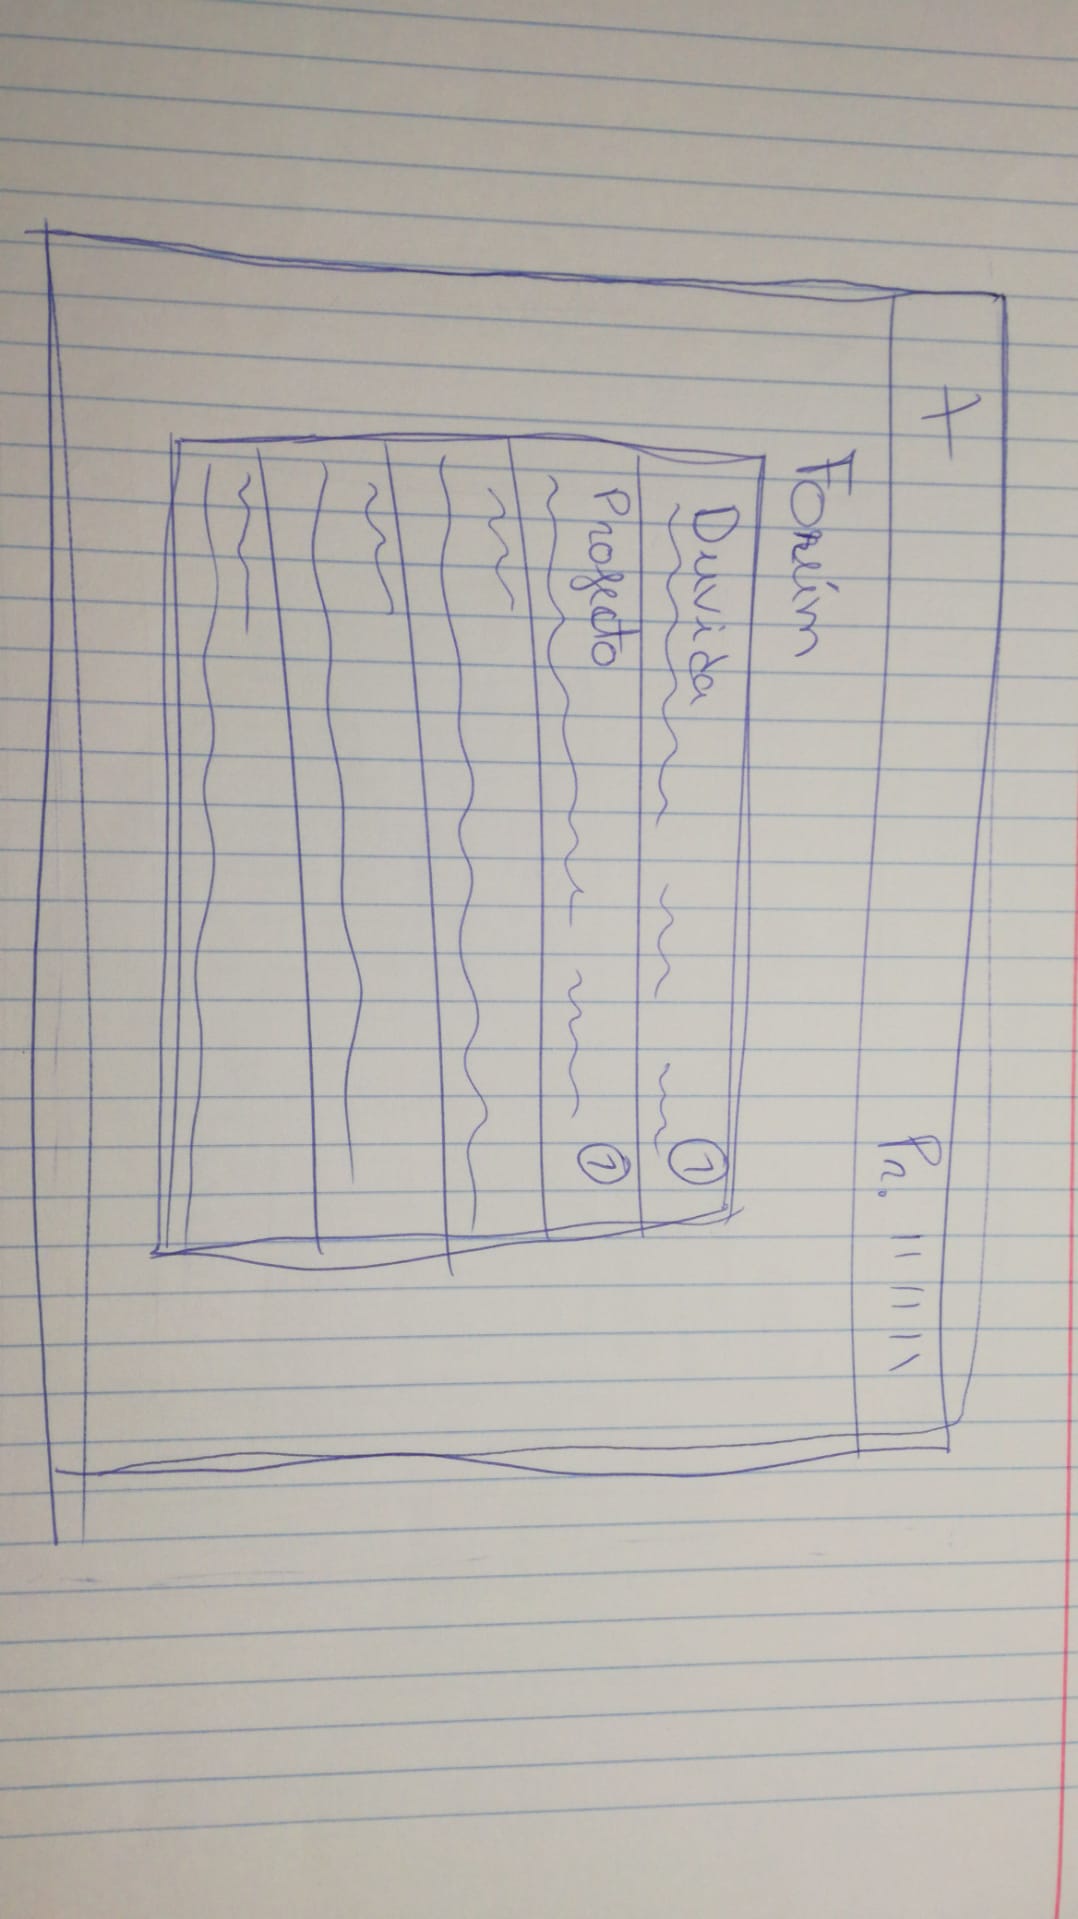 +
Pr. || || ||
Forúm
Duvida 1
Projecto 1